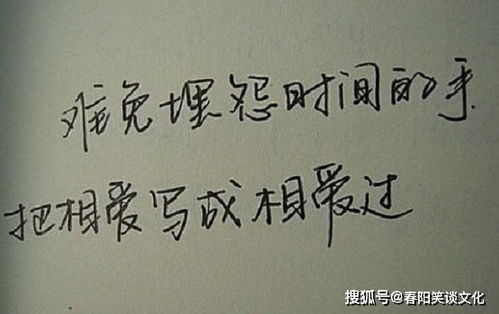 难免埋怨时间的手
把相爱写成相爱过
搜狐号@春阳笑谈文化